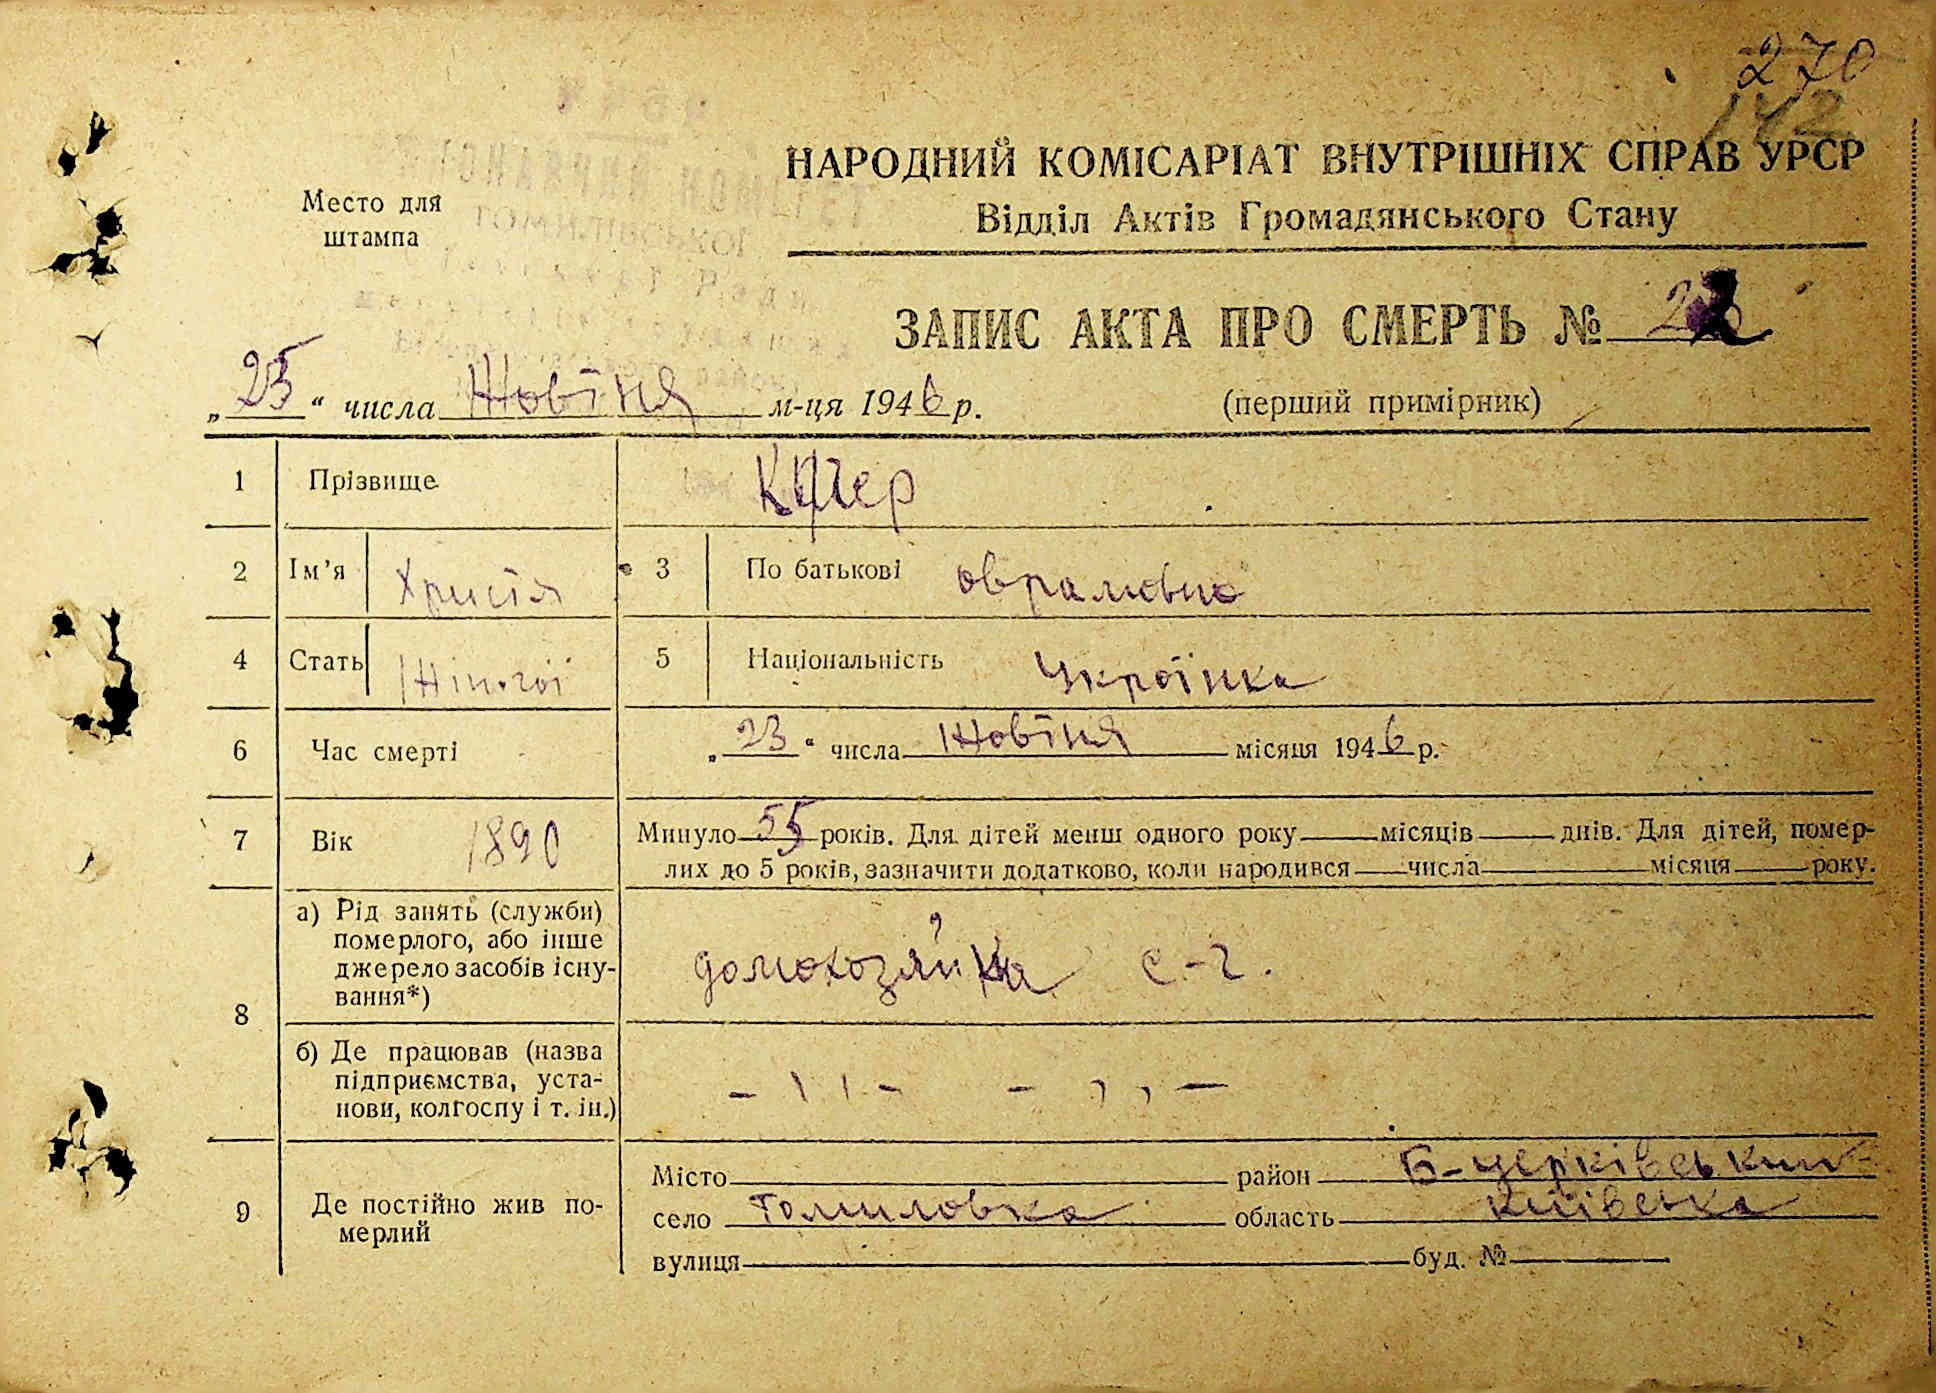 270
142
Место для
штампа
НАРОДНИЙ КОМІСАРІАТ ВНУТРІШНІХ СПРАВ УРСР
Відділ Актів Громадянського Стану
ЗАПИС АКТА ПРО СМЕРТЬ №
„25“ числа Жовтня м-ця 1946 р. (перший примірник)
1 Прізвище
2 Ім’я Христя 3 По батькові оврамовна
4 Стать Жіночої 5 Національність Українка
6 Час смерті „23“ числа Жовтня місяця 1946 р.
7 Вік 1890 Минуло 55 років. Для дітей менш одного року місяців днів. Для дітей, помер-
лих до 5 років, зазначити додатково, коли народився числа місяця року.
8 а) Рід занять (служби)
померлого, або інше
джерело засобів існу-
вання*)
домохозяйка с-г.
б) Де працював (назва
підприємства, уста-
нови, колгоспу і т. ін.)
- ıı - - ,, -
9 Де постійно жив по-
мерлий
Місто район Б-церківський
село Томиловка область Київська
вулиця буд. №